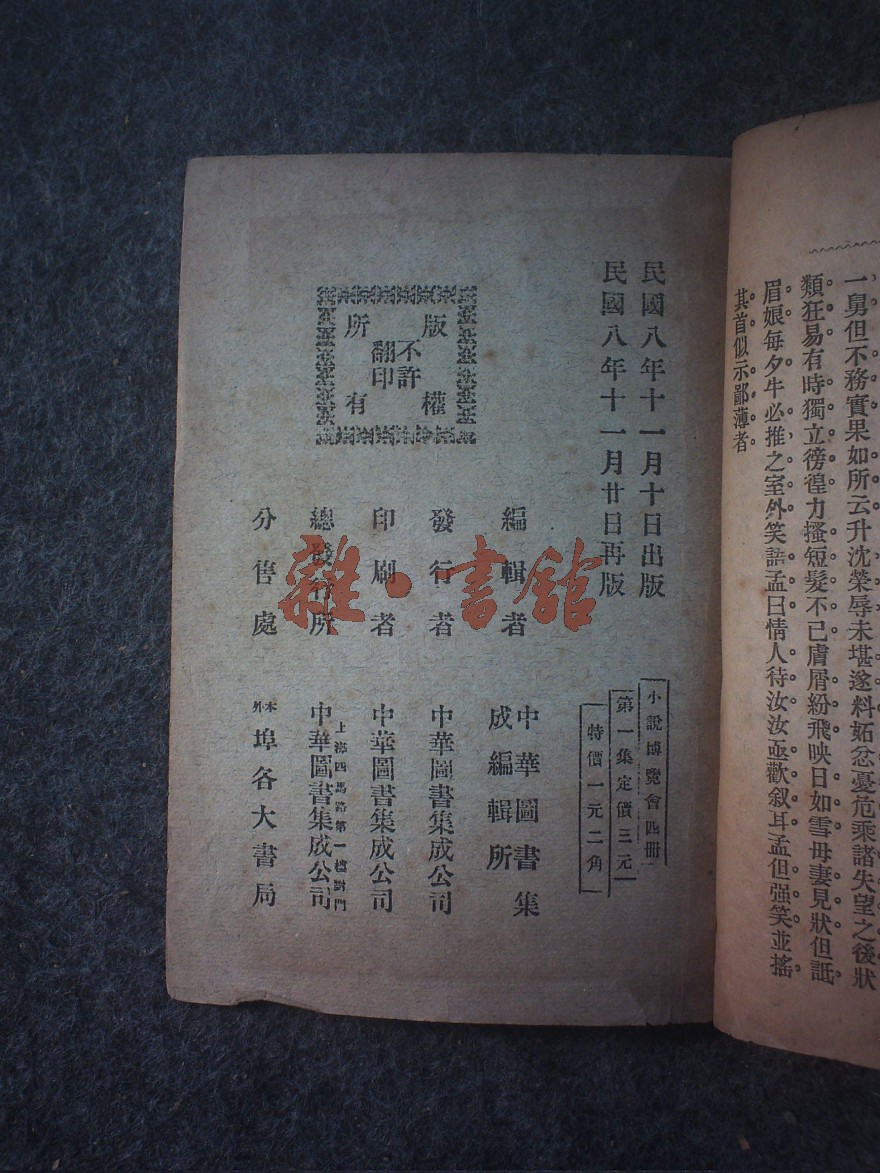 一舅但不務實果如所云升沈榮辱未堪遂料妬忿憂危乘諸失望之後狀
類狂易有時獨立徬徨力搔短髮不已膚屑紛飛映日如雪毋妻見狀但詆
眉娘每夕牛必推之室外笑語孟曰情人待汝汝亟歡叙耳孟但强笑並搖
其首似示鄙薄者
民國八年十一月十日出版
民國八年十一月廿日再版
小說博覽會四册
第一集定價三元
特價一元二角
版權所有
不許翻印
編輯者 中華圖書集成編輯所
發行者 中華圖書集成公司
印刷者 中華圖書集成公司
總發行所 上海四馬路第一樓對門 中華圖書集成公司
分售處 本外埠各大書局
雜·書館